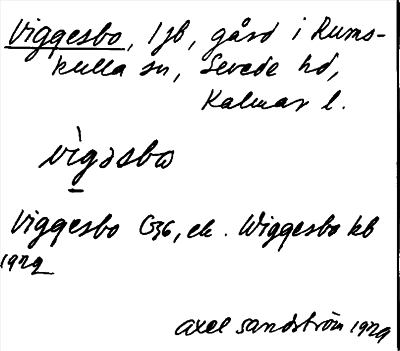 Viggesbo, 1 jb, gård i Rums-
kulla sn, Sevede hd,
Kalmar l.
vìgəsbω
Viggesbo G36, ek. Wiggesbo kb
1929
Axel Sandström 1929